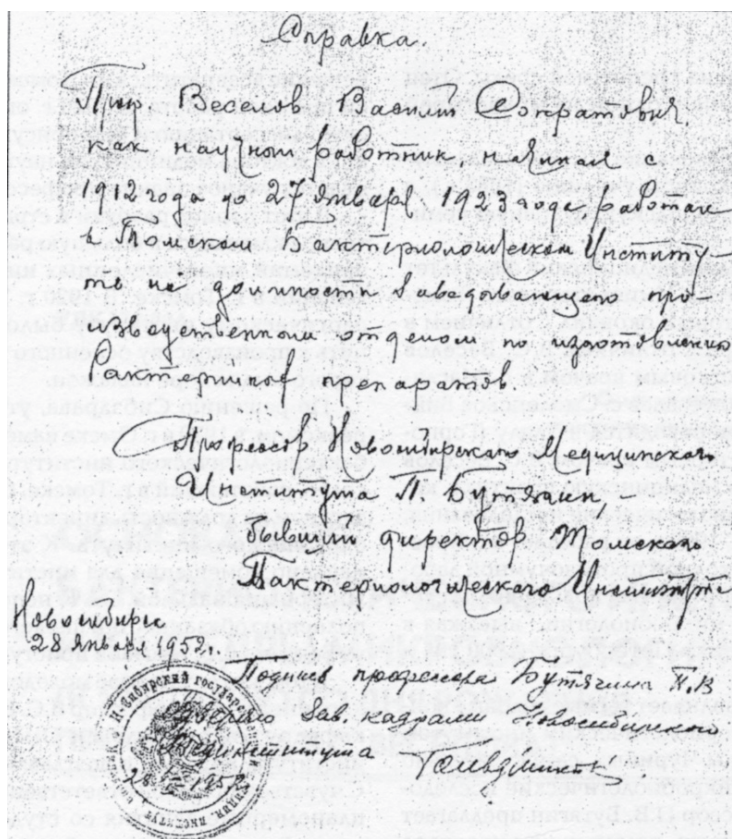 Справка.
Проф Веселов Василий Сократович
как научной работник, начиная с
1912 года до 27 января 1923 года работал
в Томском Бактериологическом Институ-
те на должности заведовающего про-
изводственном отделом по изготовлению
бактерийных препаратов.
Профессор Новосибирского Медицинского
Института П. Бутягин —
бывший директор Томского
Бактериологического Института
Новосибирск
28 января 1952г.
Подпись профессора Бутягина П.В
Зав. кадрами Новосибирского
Мединститута
28 1952